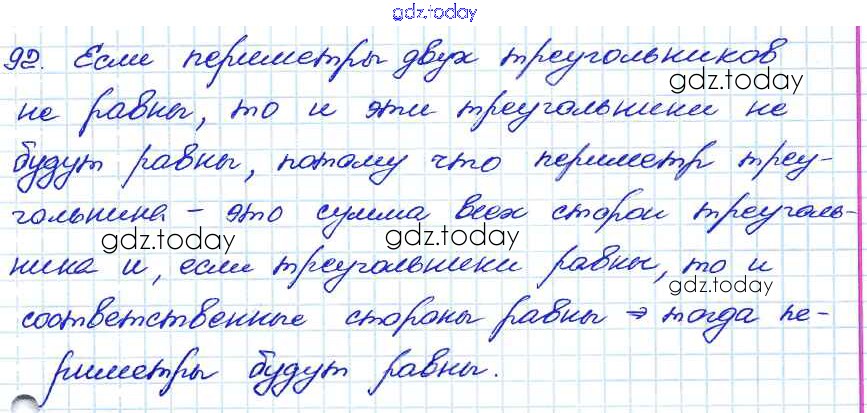 gdz.today
92. Если периметры двух треугольников
gdz.today
не равны, то и эти треугольники не
будут равны, потому что периметр треу-
гольника - это сумма всех сторон треуголь-
gdz.today gdz.today
ника и, если треугольники равны, то и
gdz.today
соответственные стороны равны ⇒ тогда пе-
риметры будут равны.